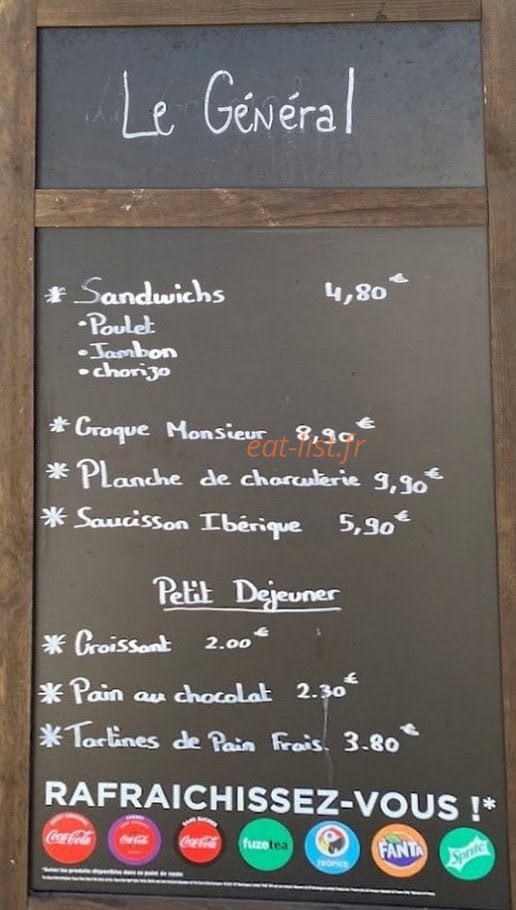 Le Général
* Sandwichs 4,80€
• Poulet
• Jambon
• chorizo
* Croque Monsieur 8,90€
eat-list.fr
* Planche de charcuterie 9,90€
* Saucisson Ibérique 5,90€
Petit Dejeuner
* Croissant 2.00€
* Pain au chocolat 2.30€
* Tartines de Pain Frais 3.80€
RAFRAICHISSEZ-VOUS !*
Coca-Cola Coca-Cola SANS SUCRES Coca-Cola fuzetea TROPICO FANTA Sprite
*Selon les produits disponibles dans ce point de vente